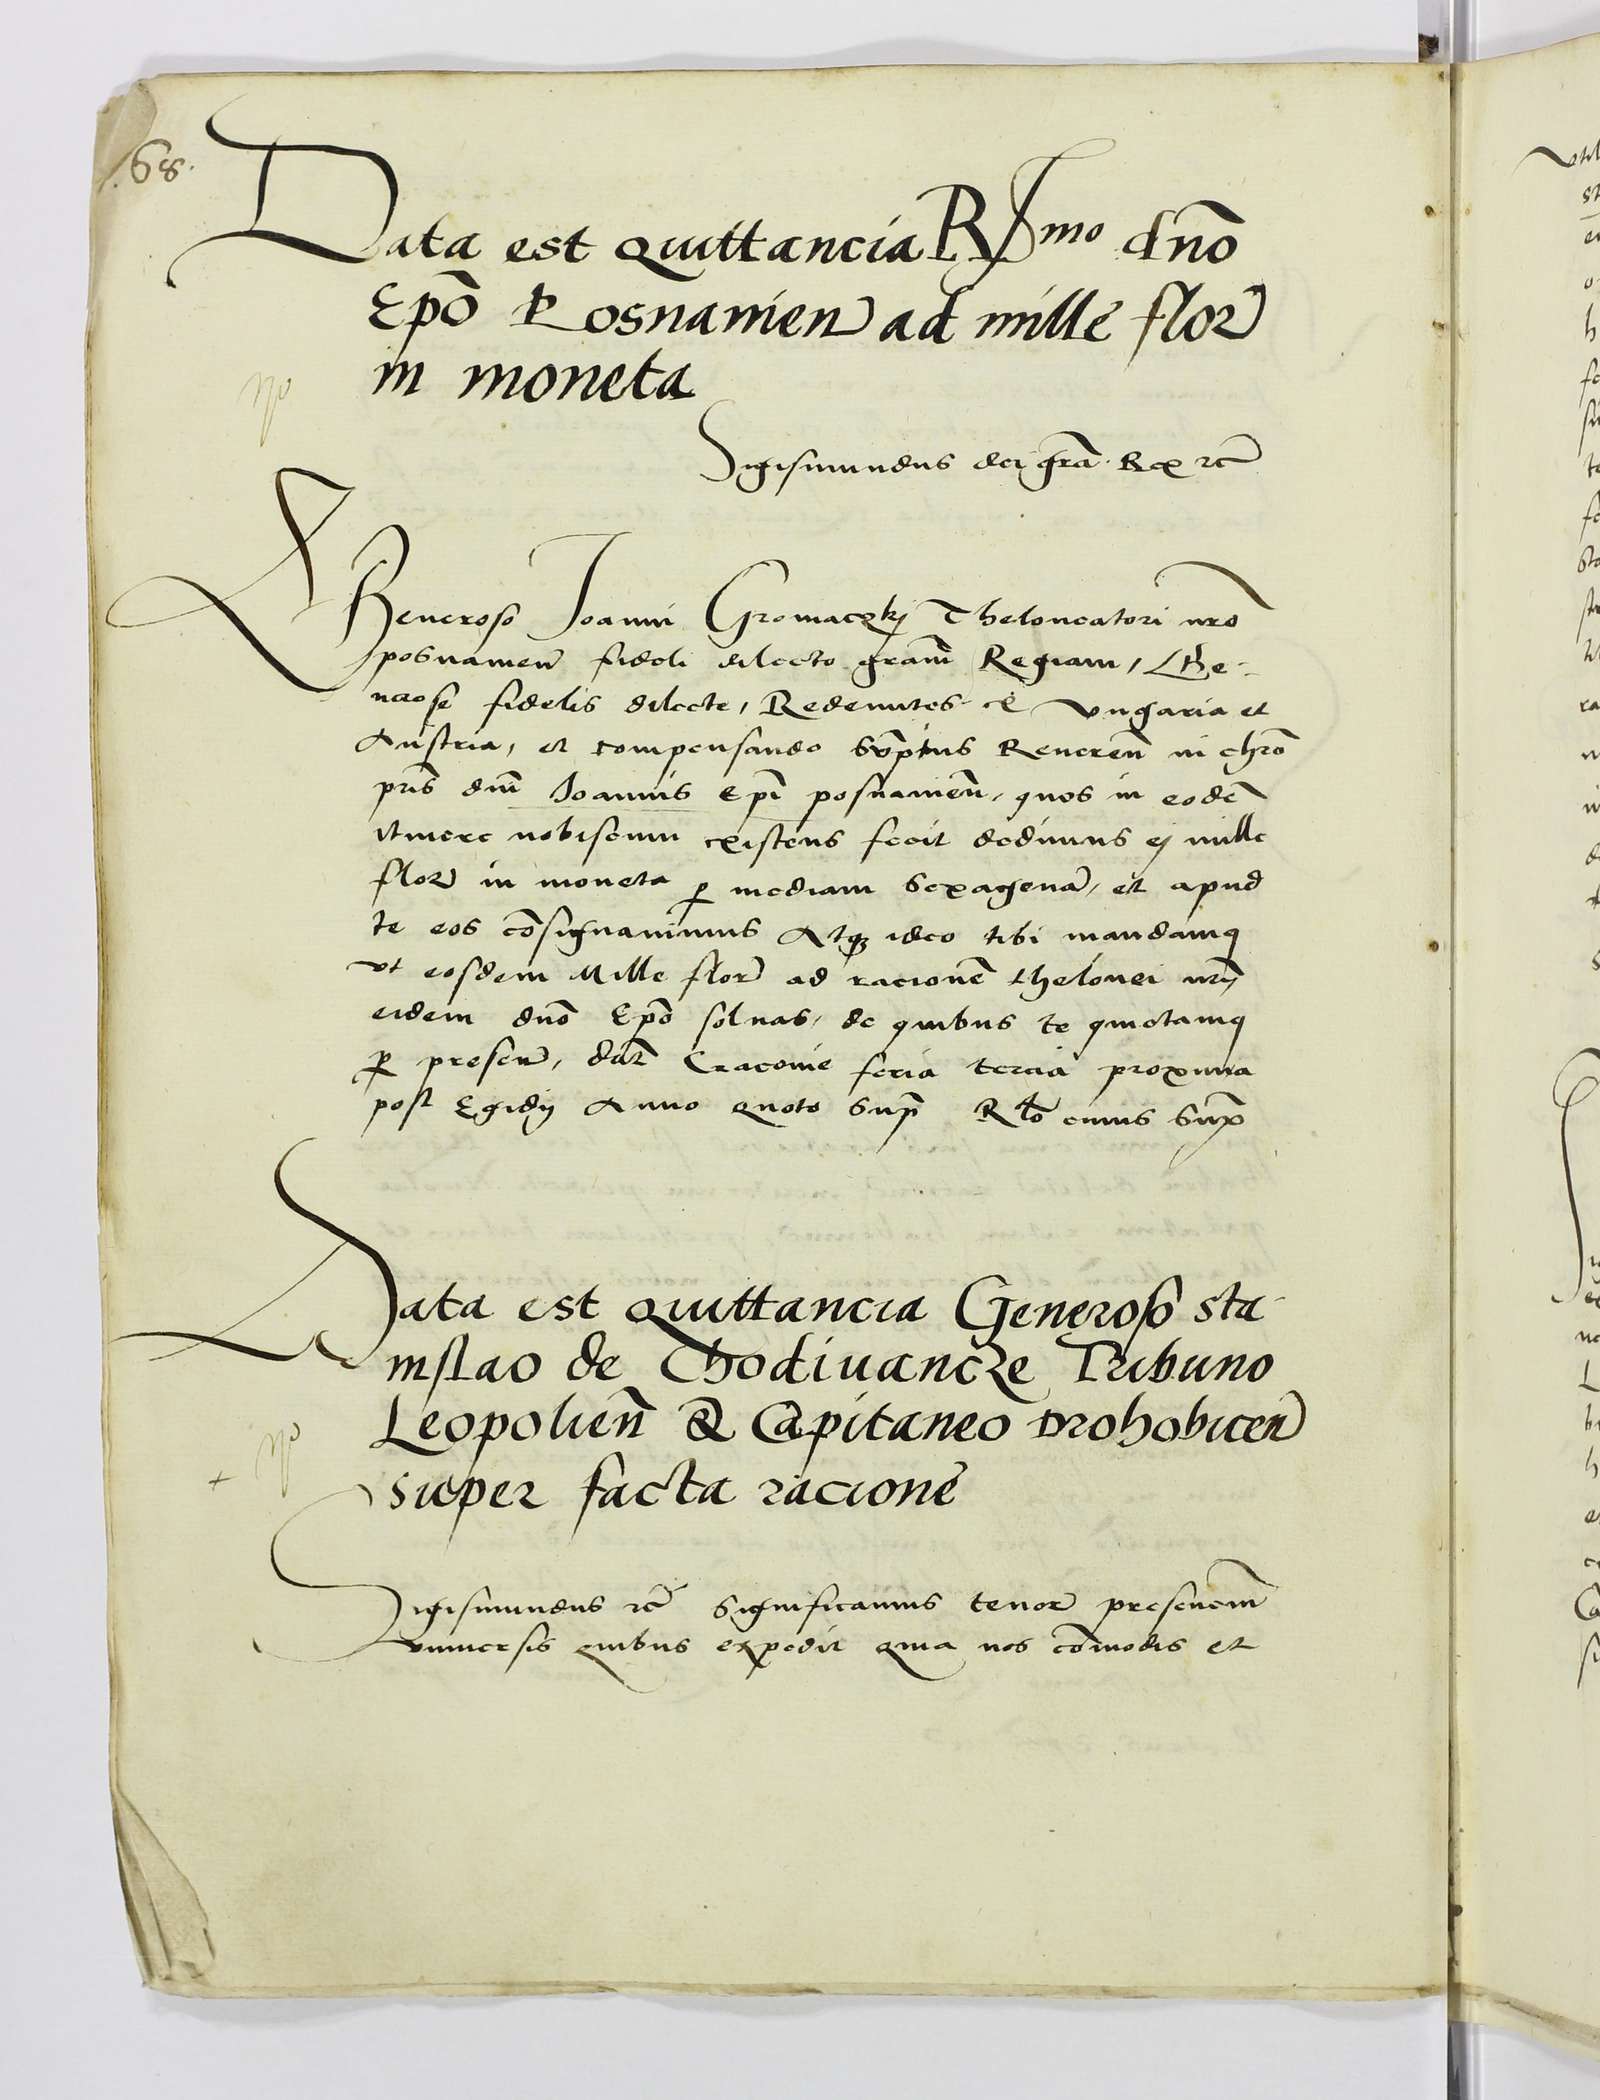 168.
Data est Quittancia R͞mo dn̄o
Ep̄o Posnanien̄ ad mille flor̄
in moneta
no
Sigismundus dei gr̄a Rex rc̄
Generoso Joanni Gromaczkj Theloneatori nr̄o
posnanien̄ fideli dilecto gram̄ Regiam, Ge-
nerose fidelis dilecte, Redeuntes ex Vngaria et
Austria, et compensando Su͞ptus Reveren̄ in chr̄o
pr̄is dn̄i Joannis Ep̄i posnanien̄, quos in eode͞
itinere nobiscum existens fecit dedimus ej mille
flor̄ in moneta ꝑ mediam Sexagena͞, et apud
te eos co͞signavimus Atqꝫ ideo tibi mandamꝯ
vt eosdem Mille flor̄ ad racione͞ thelonei nrj̄
eidem dn̄o Ep̄o solvas, de quibus te quietamꝯ
ꝑ presen̄, dat̄ Cracovie feria tercia proxima
post Egidij Anno quoto Sup̄ R͞lo cuius Sup̄
Data est Quittancia Generoso sta-
nislao de Chodivancze Tribuno
Leopolien̄ & Capitaneo Drohobicen̄
super facta racione͞
+ no
Sigismundus rc̄ Significamus tenor̄ presencium̄
vniversis quibus expedit quia nos co͞modis et